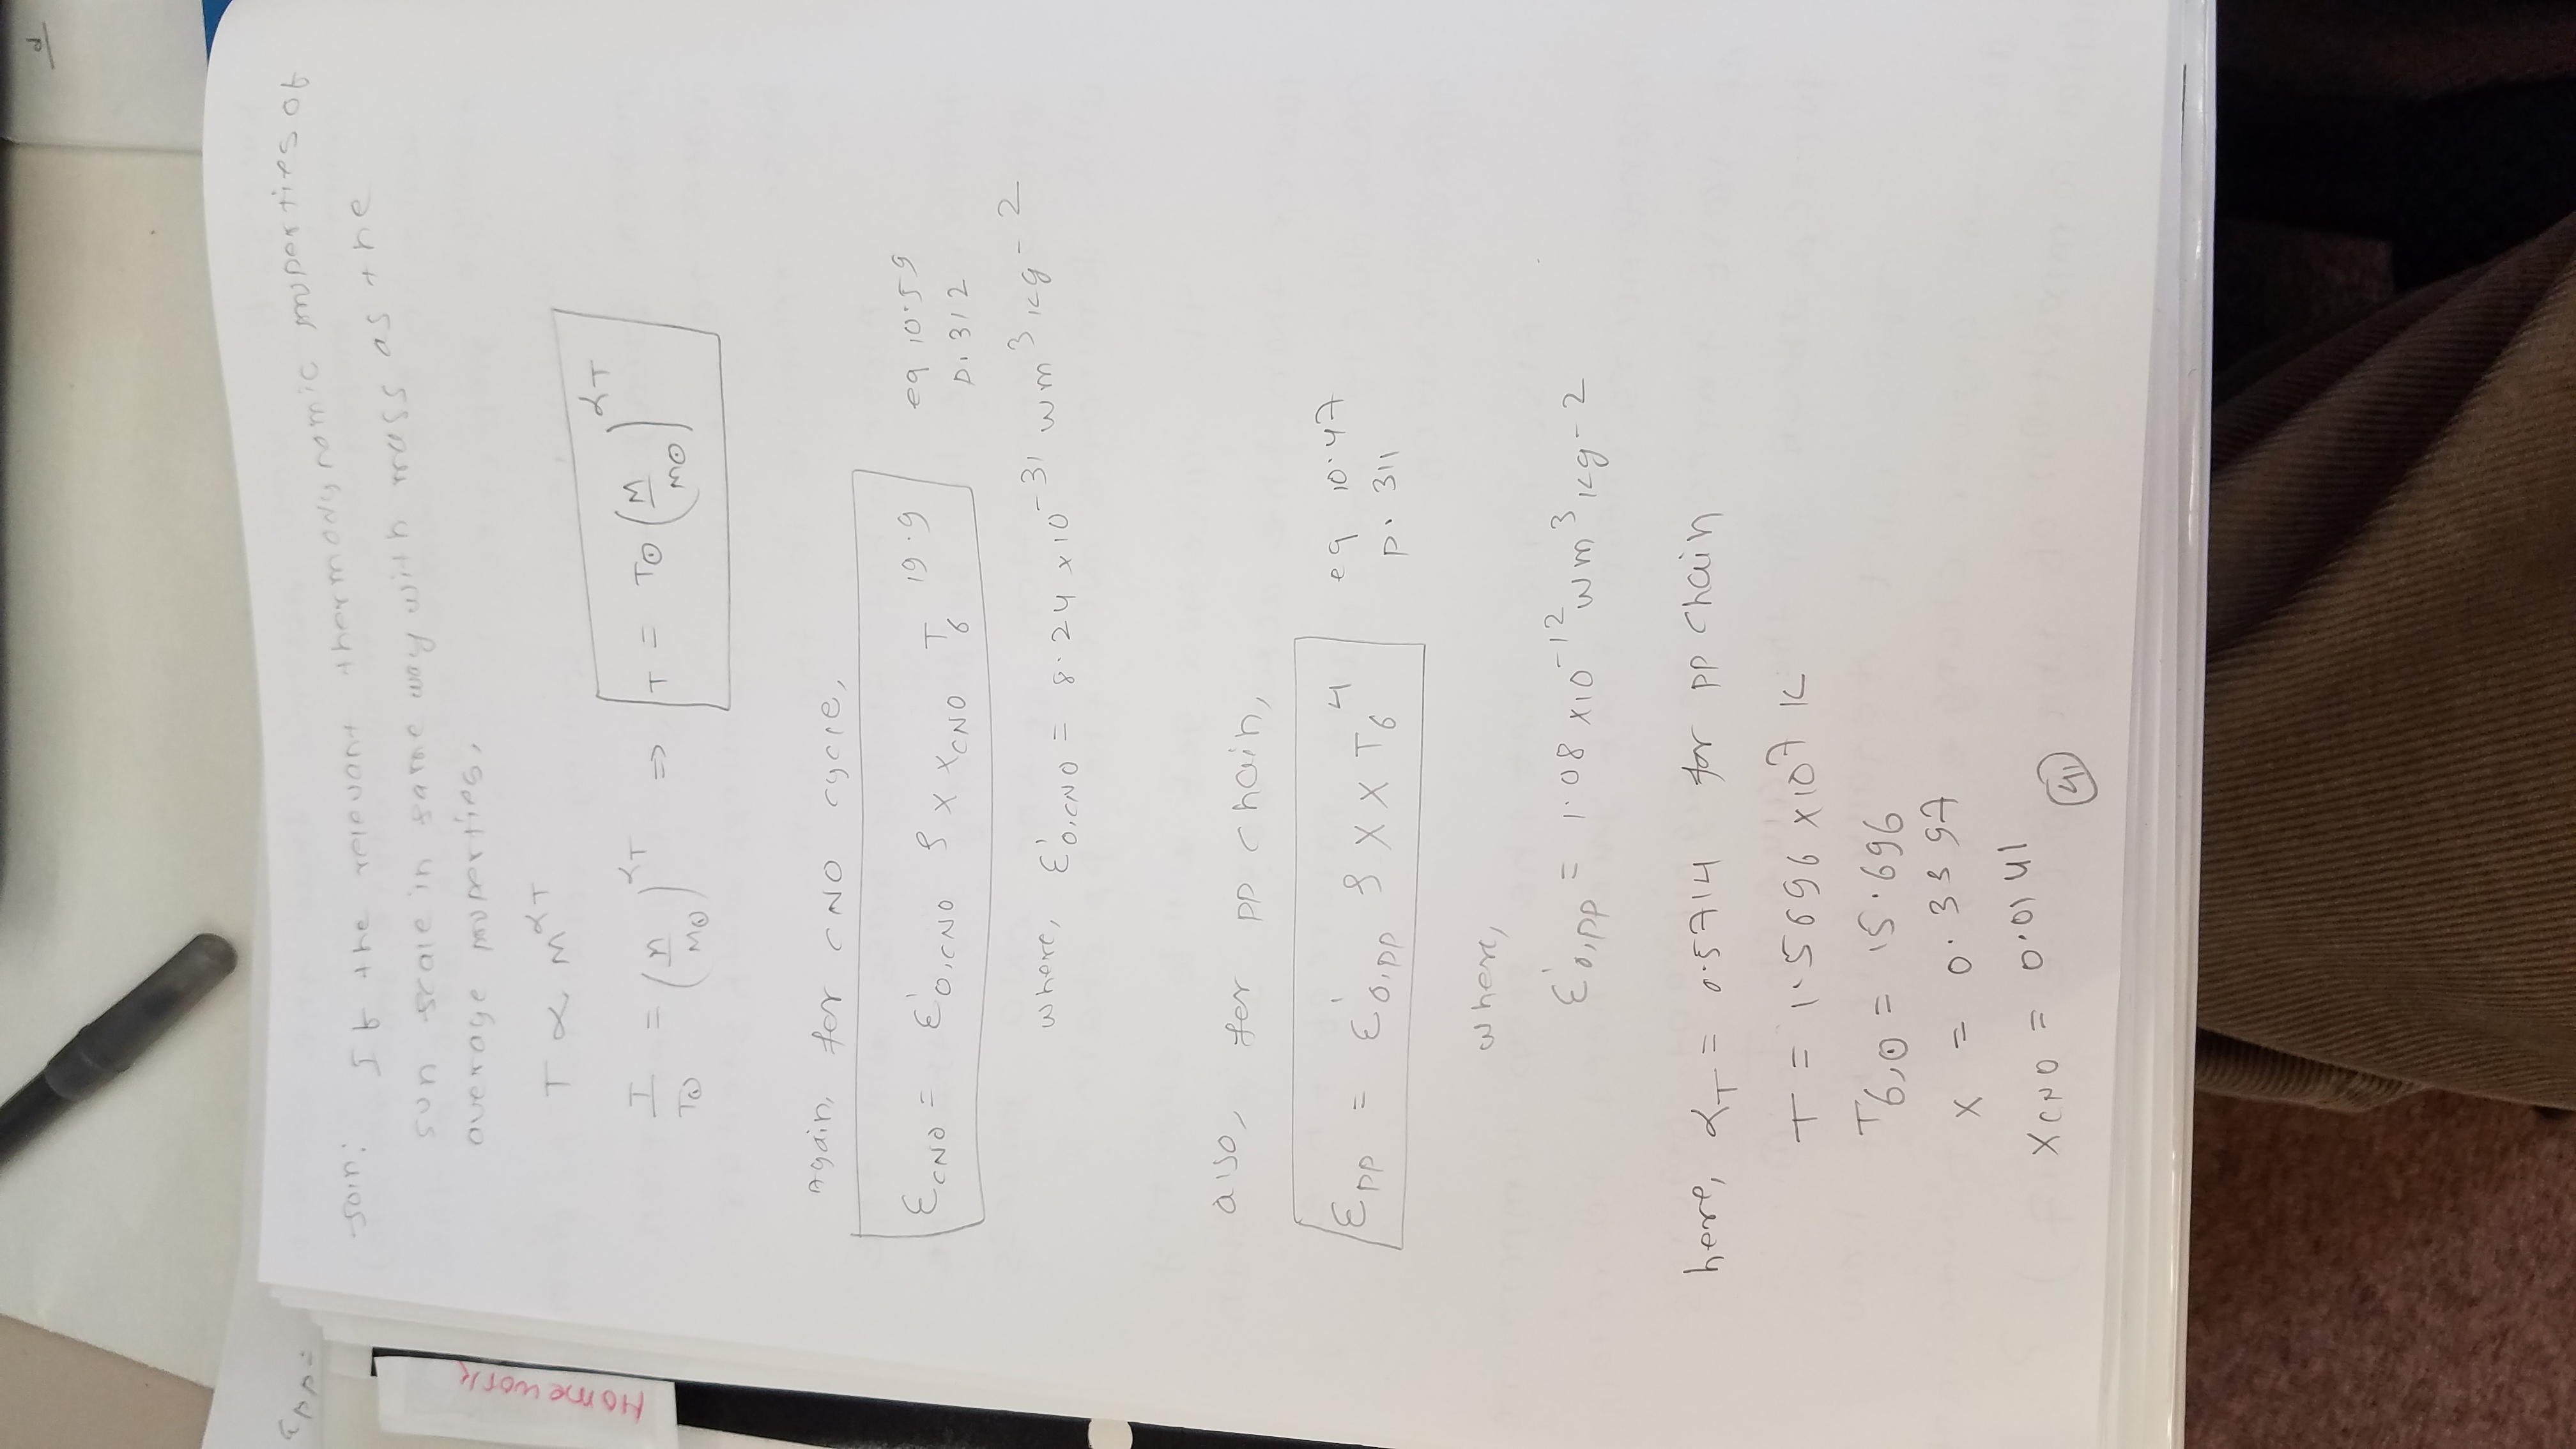 d
εpp=
Homework
Soln: If the relevant thermodynamic properties of
sun scale in same way with mass as the
average properties,
T ∝ M^αT
T/T⊙ = (M/M⊙)^αT ⇒ T = T⊙ (M/M⊙)^αT
Again, for CNO cycle,
εCNO = ε'0,CNO ρ X XCNO T6^19.9 eq 10.59
p. 312
where, ε'0,CNO = 8.24 x 10^-31 Wm^3 kg-2
also, for pp chain,
εpp = ε'0,pp ρ X X T6^4 eq 10.47
p. 311
where,
ε'0,pp = 1.08 x 10^-12 Wm^3 kg-2
here, αT = 0.5714 for pp chain
T = 1.5696 x 10^7 K
T6,⊙ = 15.696
X = 0.3397
XCNO = 0.0141
41